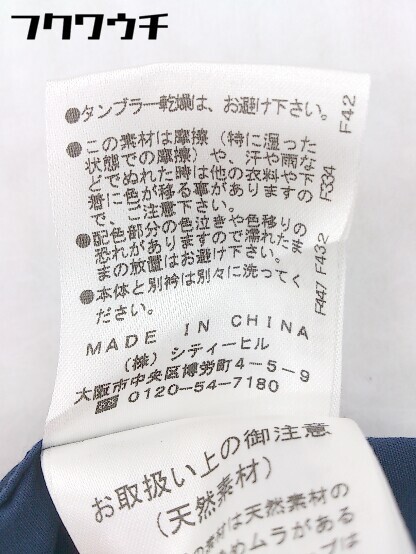 フクワウチ
●タンブラー乾燥は、お避け下さい。 F42
●この素材は摩擦(特に湿った
状態での摩擦)や、汗や雨な
どでぬれた時は他の衣料や下
着に色が移る事がありますの
で、ご注意下さい。 F334
●配色部分の色泣きや色移りの
恐れがありますので濡れたま
まの放置はお避け下さい。 F432
●本体と別衿は別々に洗ってく
ださい。 F447
MADE IN CHINA
(株) シティーヒル
大阪市中央区博労町4-5-9
0120-54-7180
お取扱い上の御注意
(天然素材)
素材は天然素材の
ムラがある